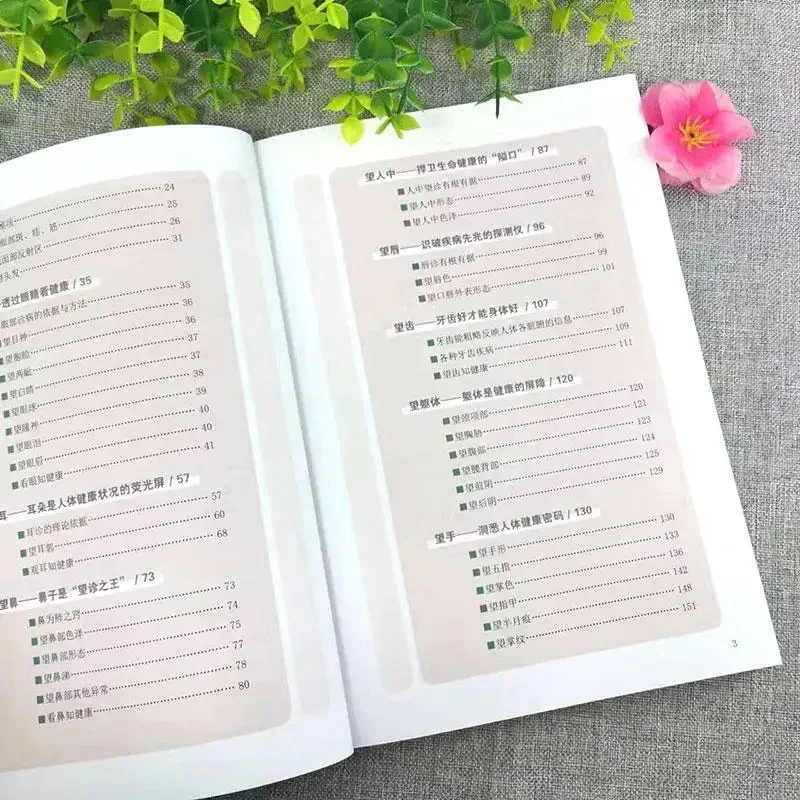 24
面部斑、痣、筋 25
面部反射区 26
望头发 31
透过眼睛看健康 / 35
眼部诊病的依据与方法 35
望目神 36
望胞睑 36
望两眦 37
望白睛 37
望眼球 38
望瞳神 39
望眼泪 40
望眼眉 40
看眼知健康 41
耳——耳朵是人体健康状况的荧光屏 / 57
耳诊的理论依据 57
望耳郭 60
观耳知健康 68
望鼻——鼻子是“望诊之王” / 73
鼻为肺之窍 73
望鼻部色泽 74
望鼻部形态 75
望鼻涕 77
望鼻部其他异常 78
看鼻知健康 80
望人中——捍卫生命健康的“隘口” / 87
人中望诊有根有据 87
望人中形态 89
望人中色泽 92
望唇——识破疾病先兆的探测仪 / 96
唇诊有根有据 96
望唇色 99
望口唇外表形态 101
望齿——牙齿好才能身体好 / 107
牙齿能粗略反映人体各脏腑的信息 107
各种牙齿疾病 109
望齿知健康 111
望躯体——躯体是健康的屏障 / 120
望颈项部 120
望胸胁 123
望腹部 124
望腰背部 125
望前阴 129
望后阴
望手——洞悉人体健康密码 / 130
望手形 130
望五指 133
望掌色 136
望指甲 142
望半月痕 148
望掌纹 151
3